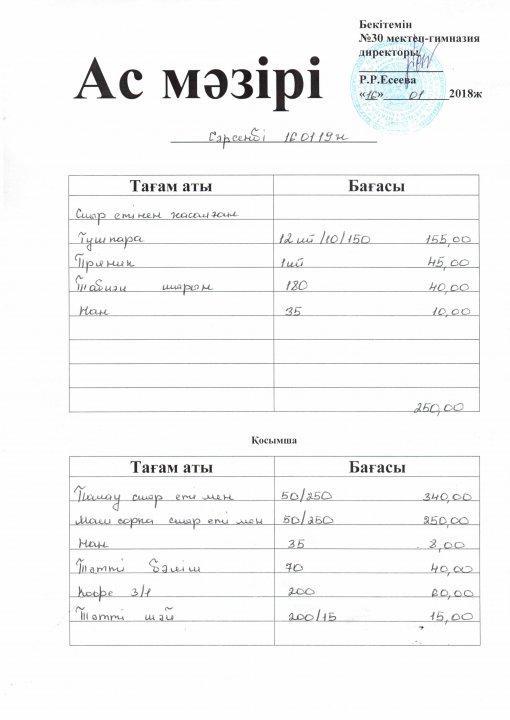 Бекітемін
№30 мектеп-гимназия
директоры
Р.Р.Есеева
«16» 01 2018ж
Ас мәзірі
Сәрсенбі 16 01 19ж
Тағам аты Бағасы
Сиыр етінен жасалған
Тушпара 12 шт/10/150 155,00
Пряник 1шт 45,00
Табиғи шырын 180 40,00
Нан 35 10,00
250,00
Қосымша
Тағам аты Бағасы
Палау сиыр еті мен 50/250 340,00
Маш сорпа сиыр еті мен 50/250 250,00
Нан 35 8,00
Тәтті бәліш 70 40,00
Кофе 3/1 200 80,00
Тәтті шәй 200/15 15,00